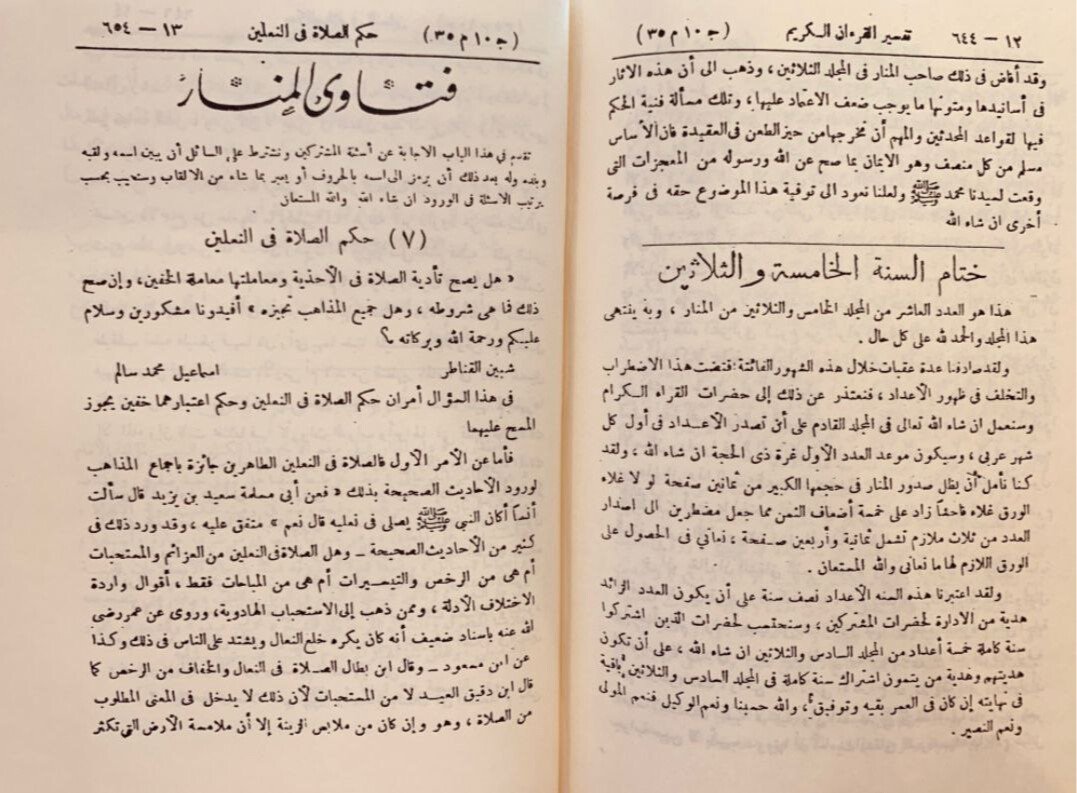 ١٢ — ٦٤٤ تفسير القرءان الكريم ( ج ١٠ م ٣٥ )
وقد أفاض فى ذلك صاحب المنار فى المجلد الثلاثين ، وذهب الى أن هذه الاثار
فى أسانيدها ومتونها ما يوجب ضعف الاعتماد عليها، وتلك مسألة فنية الحكم
فيها لقواعد المحدثين والمهم أن مخرجها من حيز الطعن فى العقيدة فان الأساس
مسلم من كل منصف وهو الايمان بما صح عن الله ورسوله من المعجزات التى
وقعت لسيدنا محمد ﷺ ولعلنا نعود الى توفية هذا الموضوع حقه فى فرصة
أخرى ان شاء الله
ختام السنة الخامسة والثلاثين
هذا هو العدد العاشر من المجلد الخامس والثلاثين من المنار ، وبه ينتهى
هذا المجلد والحمد لله على كل حال .
ولقد صادفنا عدة عقبات خلال هذه الشهور الفائتة قضت هذا الاضطراب
والتخلف فى ظهور الأعداد ، فنعتذر عن ذلك إلى حضرات القراء الكرام
وسنعمل ان شاء الله تعالى فى المجلد القادم على أن تصدر الأعداد فى أول كل
شهر عربى ، وسيكون موعد العدد الأول غرة ذى الحجة ان شاء الله ، ولقد
كنا نأمل أن يظل صدور المنار فى حجمها الكبير من ثمانين صفحة لو لا غلاء
الورق غلاء فاحشاً زاد على خمسة أضعاف الثمن مما جعل مضطرين الى اصدار
العدد من ثلاث ملازم تشمل ثمانية وأربعين صفحة ، نعانى فى الحصول على
الورق اللازم لها ما نعانى والله المستعان .
ولقد اعتبرنا هذه السنه الأعداد نصف سنة على أن يكون العدد الزائد
هدية من الادارة لحضرات المشتركين ، وسنحتسب لحضرات الذين اشتركوا
سنة كاملة خمسة أعداد من المجلد السادس والثلاثين ان شاء الله ، على أن تكون
هديتهم وهدية من يتمون اشتراك سنة كاملة فى المجلد السادس والثلاثين باقية
فى نهايته إن كان فى العمر بقيه وتوفيق ، والله حسبنا ونعم الوكيل فنعم المولى
ونعم النصير .
( ج ١٠ م ٣٥ ) حكم الصلاة فى النعلين ١٣ — ٦٥٤
فتاوى المنار
تقدم فى هذا الباب الاجابة عن أسئلة المشتركين ونشترط على السائل أن يبين اسمه ولقبه
وبلده وله بعد ذلك أن يرمز الى اسمه بالحروف أو يعبر بما شاء من الالقاب وسنجيب بحسب
ترتيب الاسئلة فى الورود ان شاء الله والله المستعان
(٧) حكم الصلاة فى النعلين
« هل يصح تأدية الصلاة فى الأحذية ومعاملتها معاملة الخفين ، وإن صح
ذلك فما هى شروطه ، وهل جميع المذاهب تجيزه » أفيدونا مشكورين وسلام
عليكم ورحمة الله وبركاته ؟
شبين القناطر اسماعيل محمد سالم
فى هذا السؤال أمران حكم الصلاة فى النعلين وحكم اعتبارهما خفين يجوز
المسح عليهما
فأما عن الأمر الأول فالصلاة فى النعلين الطاهرين جائزة باجماع المذاهب
لورود الأحاديث الصحيحة بذلك « فعن أبى مسلمة سعيد بن يزيد قال سألت
أنساً أكان النبي ﷺ يصلى فى نعليه قال نعم » متفق عليه ، وقد ورد ذلك فى
كثير من الأحاديث الصحيحة ــ وهل الصلاة فى النعلين من العزائم والمستحبات
أم هى من الرخص والتيسيرات أم هى من المباحات فقط ، أقوال واردة
الاختلاف الأدلة ، وممن ذهب إلى الاستحباب الهادوية، وروى عن عمر رضى
الله عنه باسناد ضعيف أنه كان يكره خلع النعال ويشتد على الناس فى ذلك وكذا
عن ابن مسعود ــ وقال ابن بطال الصلاة فى النعال والخفاف من الرخص كما
قال ابن دقيق العيد لا من المستحبات لأن ذلك لا يدخل فى المعنى المطلوب
من الصلاة ، وهو وإن كان من ملابس الزينة إلا أن ملامسة الأرض التى تكثر